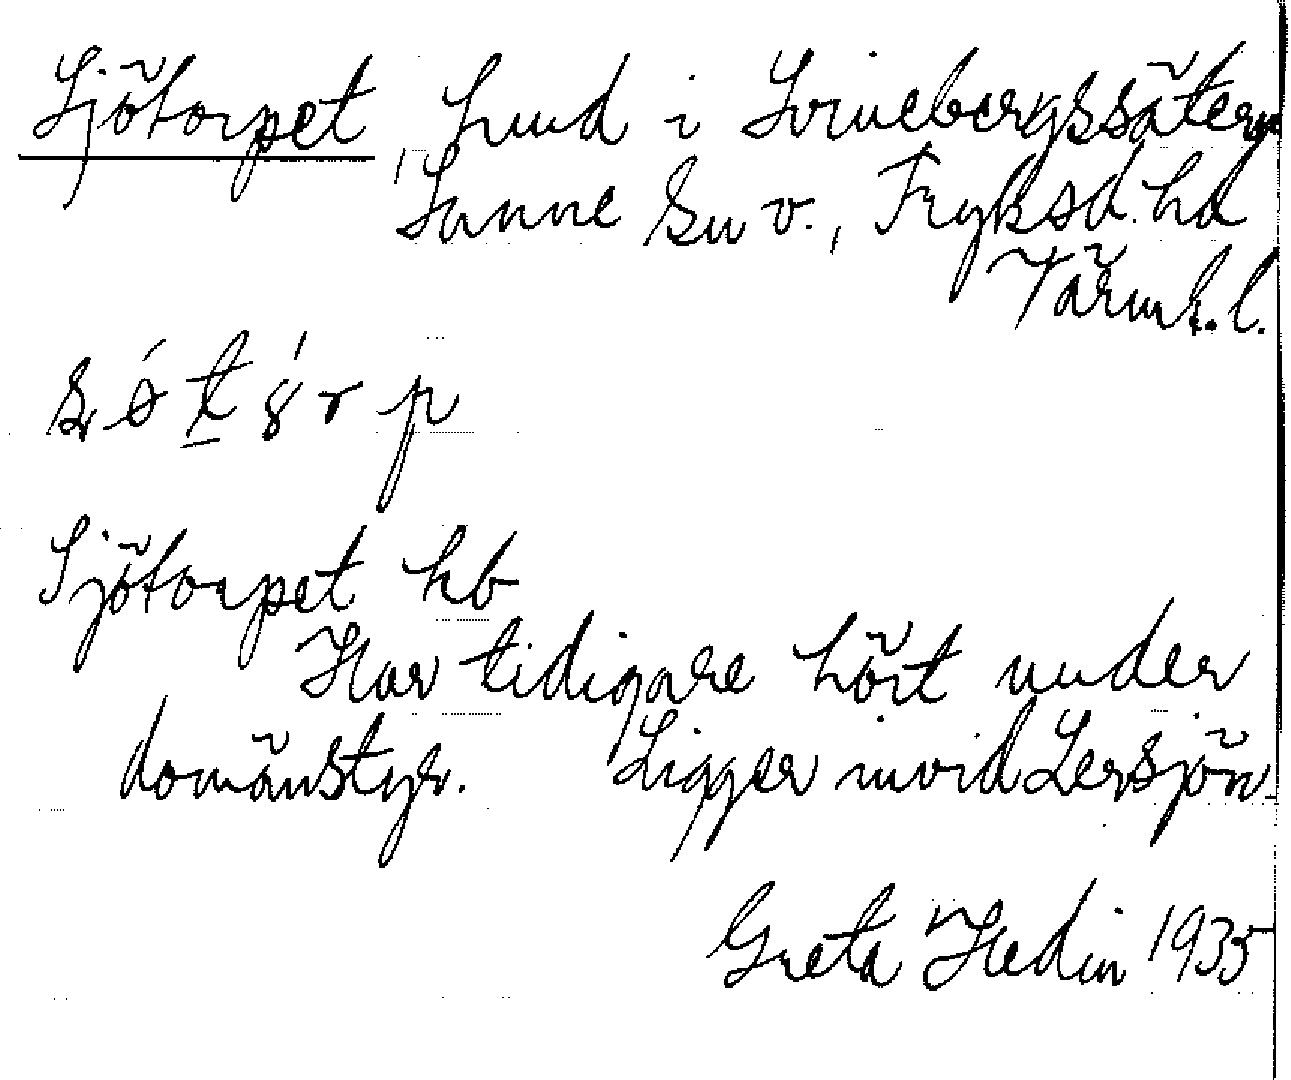 Sjötorpet hmd i Svinebergssätern
, Sunne sn v., Fryksd. hd
Värml. l.
Sjötorpet hb
Har tidigare hört under
domänstyr. Ligger invid Lersjön.
Greta Hedin 1935